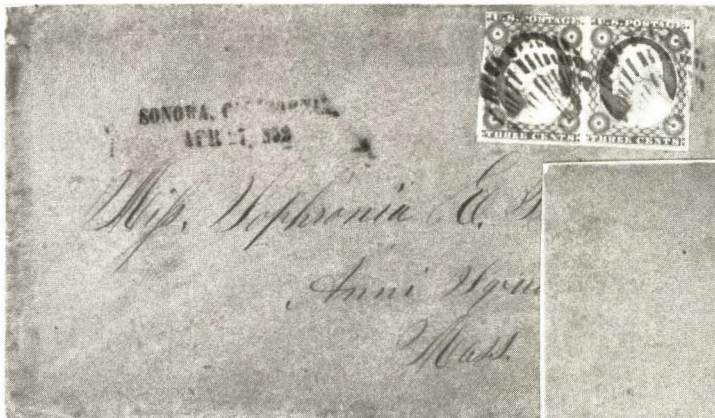 U.S. POSTAGE U.S. POSTAGE
THREE CENTS THREE CENTS
SONOWA,
APR
Miss. Sophronia E.
Anni
Mass.